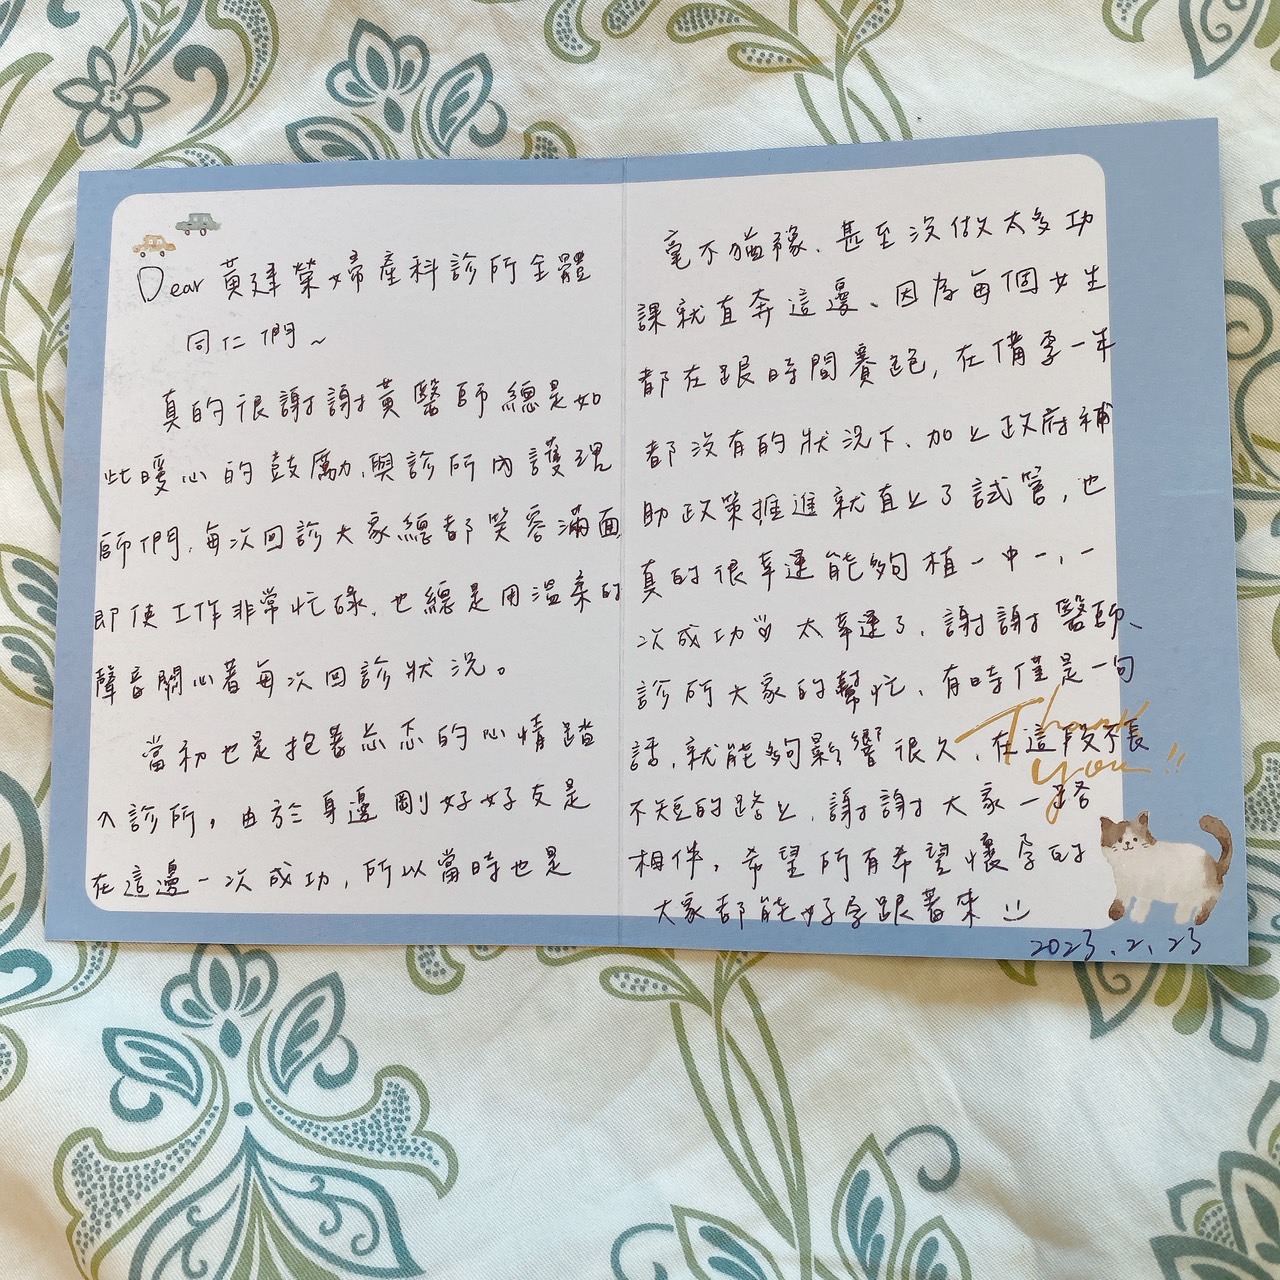 Dear 黃建榮婦產科診所全體
同仁們~
真的很謝謝黃醫師總是如
此暖心的鼓勵、與診所內護理
師們，每次回診大家總都笑容滿面，
即使工作非常忙碌，也總是用溫柔的
聲音關心著每次回診狀況。
當初也是抱著忐忑的心情踏
入診所，由於身邊剛好好友是
在這邊一次成功，所以當時也是
毫不猶豫、甚至沒做太多功
課就直奔這邊、因為每個女生
都在跟時間賽跑，在備孕一年
都沒有的狀況下、加上政府補
助政策推進就直上了試管，也
真的很幸運能夠植一中一，一
次成功♡ 太幸運了，謝謝醫師、
診所大家的幫忙、有時僅是一句
話，就能夠影響很久，在這段不長
不短的路上，謝謝大家一路
相伴，希望所有希望懷孕的
大家都能好孕跟著來
Thank you!!
2023.2.23